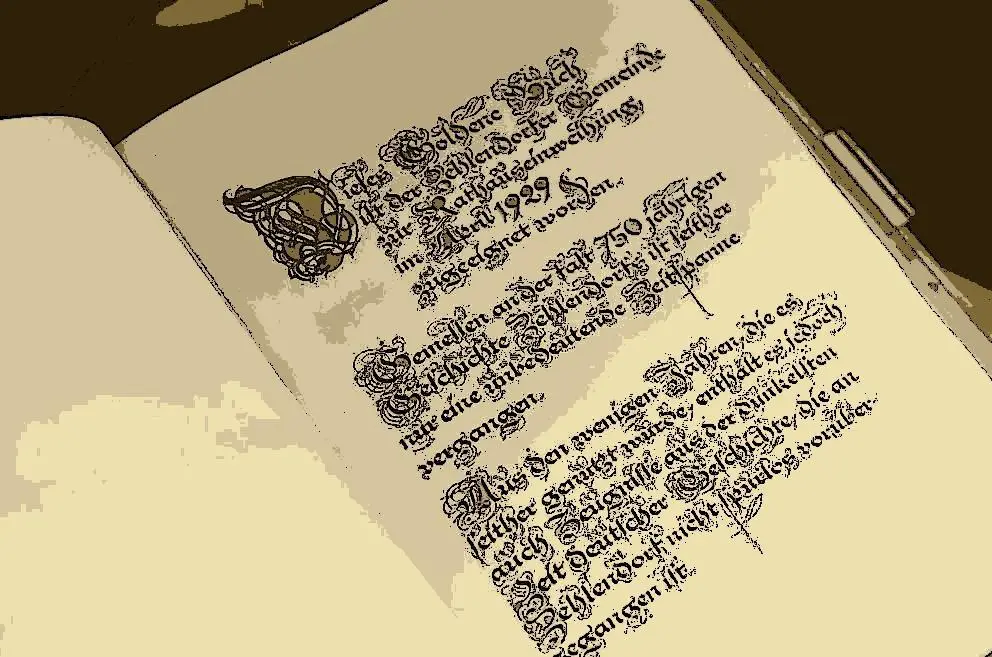 Dieses Goldene Buch
ist der Zehlendorfer Gemeinde
Rathauseinweihung
im April 1929
zugeeignet worden.
Gemessen an der fast 750 jährigen
Geschichte Zehlendorfs ist seither
nur eine unbedeutende Zeitspanne
vergangen.
Aus den wenigen Jahren, die es
seither genutzt wurde, enthält es jedoch
auch Zeugnisse aus der dunkelsten
Zeit deutscher Geschichte, die an
Zehlendorf nicht spurlos vorüber
gegangen ist.